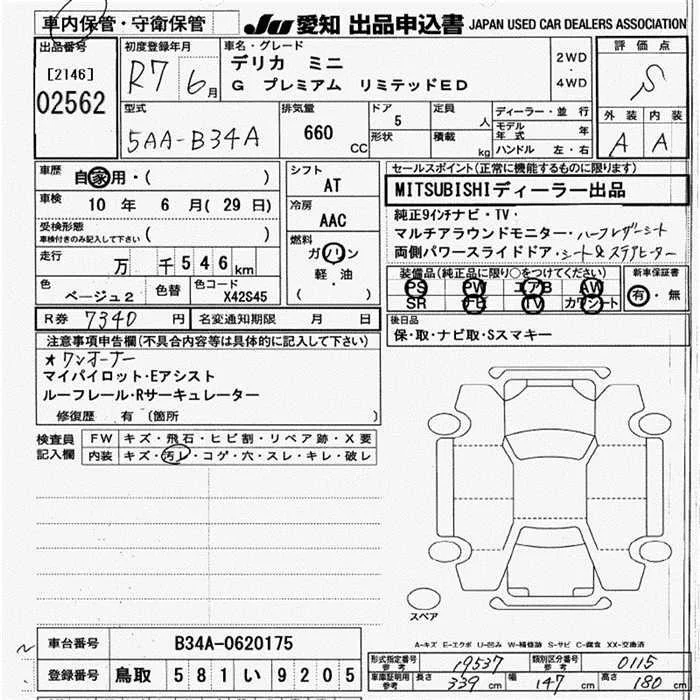 車内保管・守衛保管
JU 愛知 出品申込書 JAPAN USED CAR DEALERS ASSOCIATION
出品番号
[2146]
02562
初度登録年月
R7 6月
車名・グレード
デリカ ミニ
G プレミアム リミテッドED
2WD
・
4WD
評価点
S
外装 内装
A A
型式
5AA-B34A
排気量
660 CC
ドア
5
形状
定員
人
積載
kg
ディーラー・並行
モデル年式 年
ハンドル 左・右
車歴
自家用・( )
車検
10 年 6 月 (29 日)
受検形態
車検付きのみ記入して下さい ( )
走行
万 千546km
色
ベージュ2
色替
色コード
X42S45
シフト
AT
冷房
AAC
燃料
ガソリン
軽・油
( )
R券 7340 円
名変通知期限 月 日
セールスポイント(正常に機能するものに限ります)
MITSUBISHIディーラー出品
純正9インチナビ・TV・
マルチアラウンドモニター・ハーフレザーシート
両側パワースライドドア・シート&ステアヒーター
装備品(純正品に限り○をつけてください)
PS PW エアB AW
SR ナビ TV カワシート
新車保証書
有・無
後日品
保・取・ナビ取・Sスマキー
注意事項申告欄(不具合内容等は具体的に記入して下さい)
★ワンオーナー
マイパイロット・Eアシスト
ルーフレール・Rサーキュレーター
修復歴 有 (箇所 )
検査員記入欄
FW キズ・飛石・ヒビ割・リペア跡・X要
内装 キズ・汚レ・コゲ・穴・スレ・キレ・破レ
スペア
A-キズ E-エクボ U-凹み W-補修跡 S-サビ C-腐食 XX-交換済
車台番号 B34A-0620175
登録番号 鳥取 581い9205
形式指定番号 参考 19537
類別区分番号 参考 0115
車庫証明用 参考 長さ 339 cm 幅 147 cm 高さ 180 cm